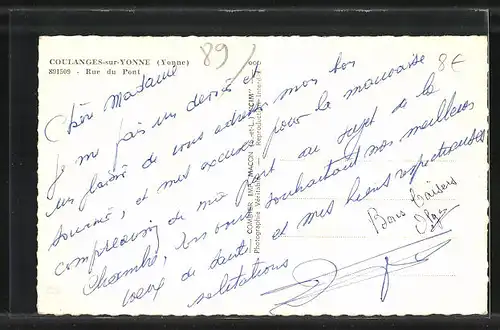 COULANGES-sur-YONNE (Yonne)
891509 - Rue du Pont
89
8€
Chère Madame
Je me fais un devoir et
un plaisir de vous adresser mon bon
souvenir, et mes excuses pour la mauvaise
compréhension de ma part au sujet de la
Chambre, en vous souhaitant nos meilleurs
vœux de santé et mes biens respectueuses
salutations
Bons Baisers
COMBIER IMP. MACON (S.-et-L.) "CIM"
Photographie Véritable - Reproduction Interdite